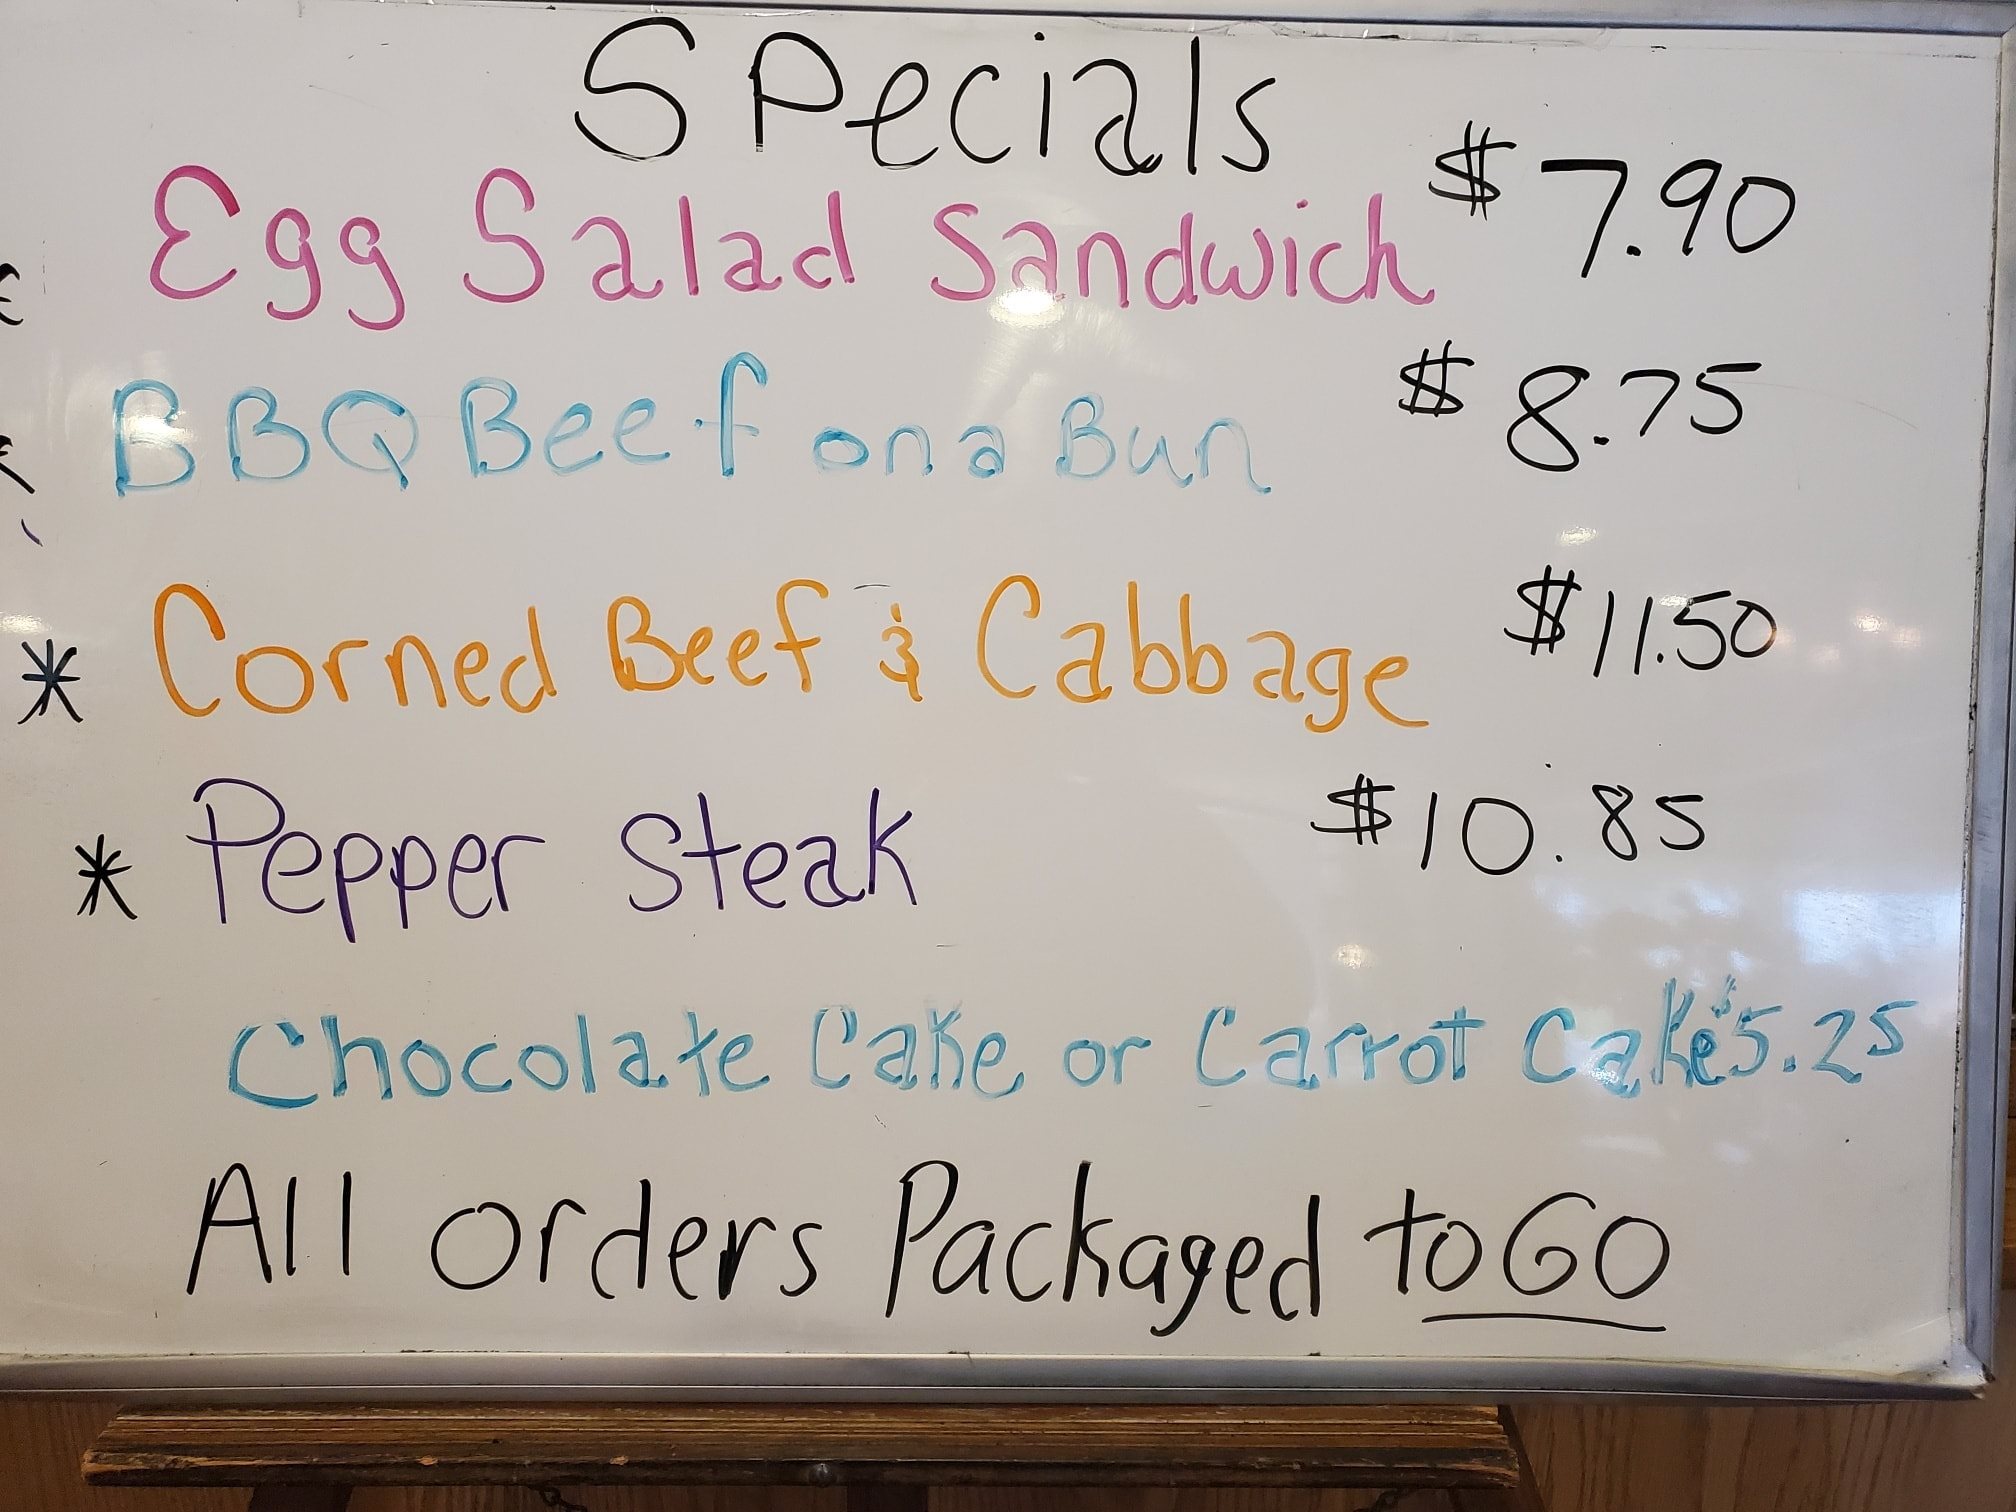 Specials
* Egg Salad Sandwich $7.90
* BBQ Beef on a Bun $8.75
* Corned Beef & Cabbage $11.50
* Pepper Steak $10.85
Chocolate Cake or Carrot Cake $5.25
All orders Packaged to GO